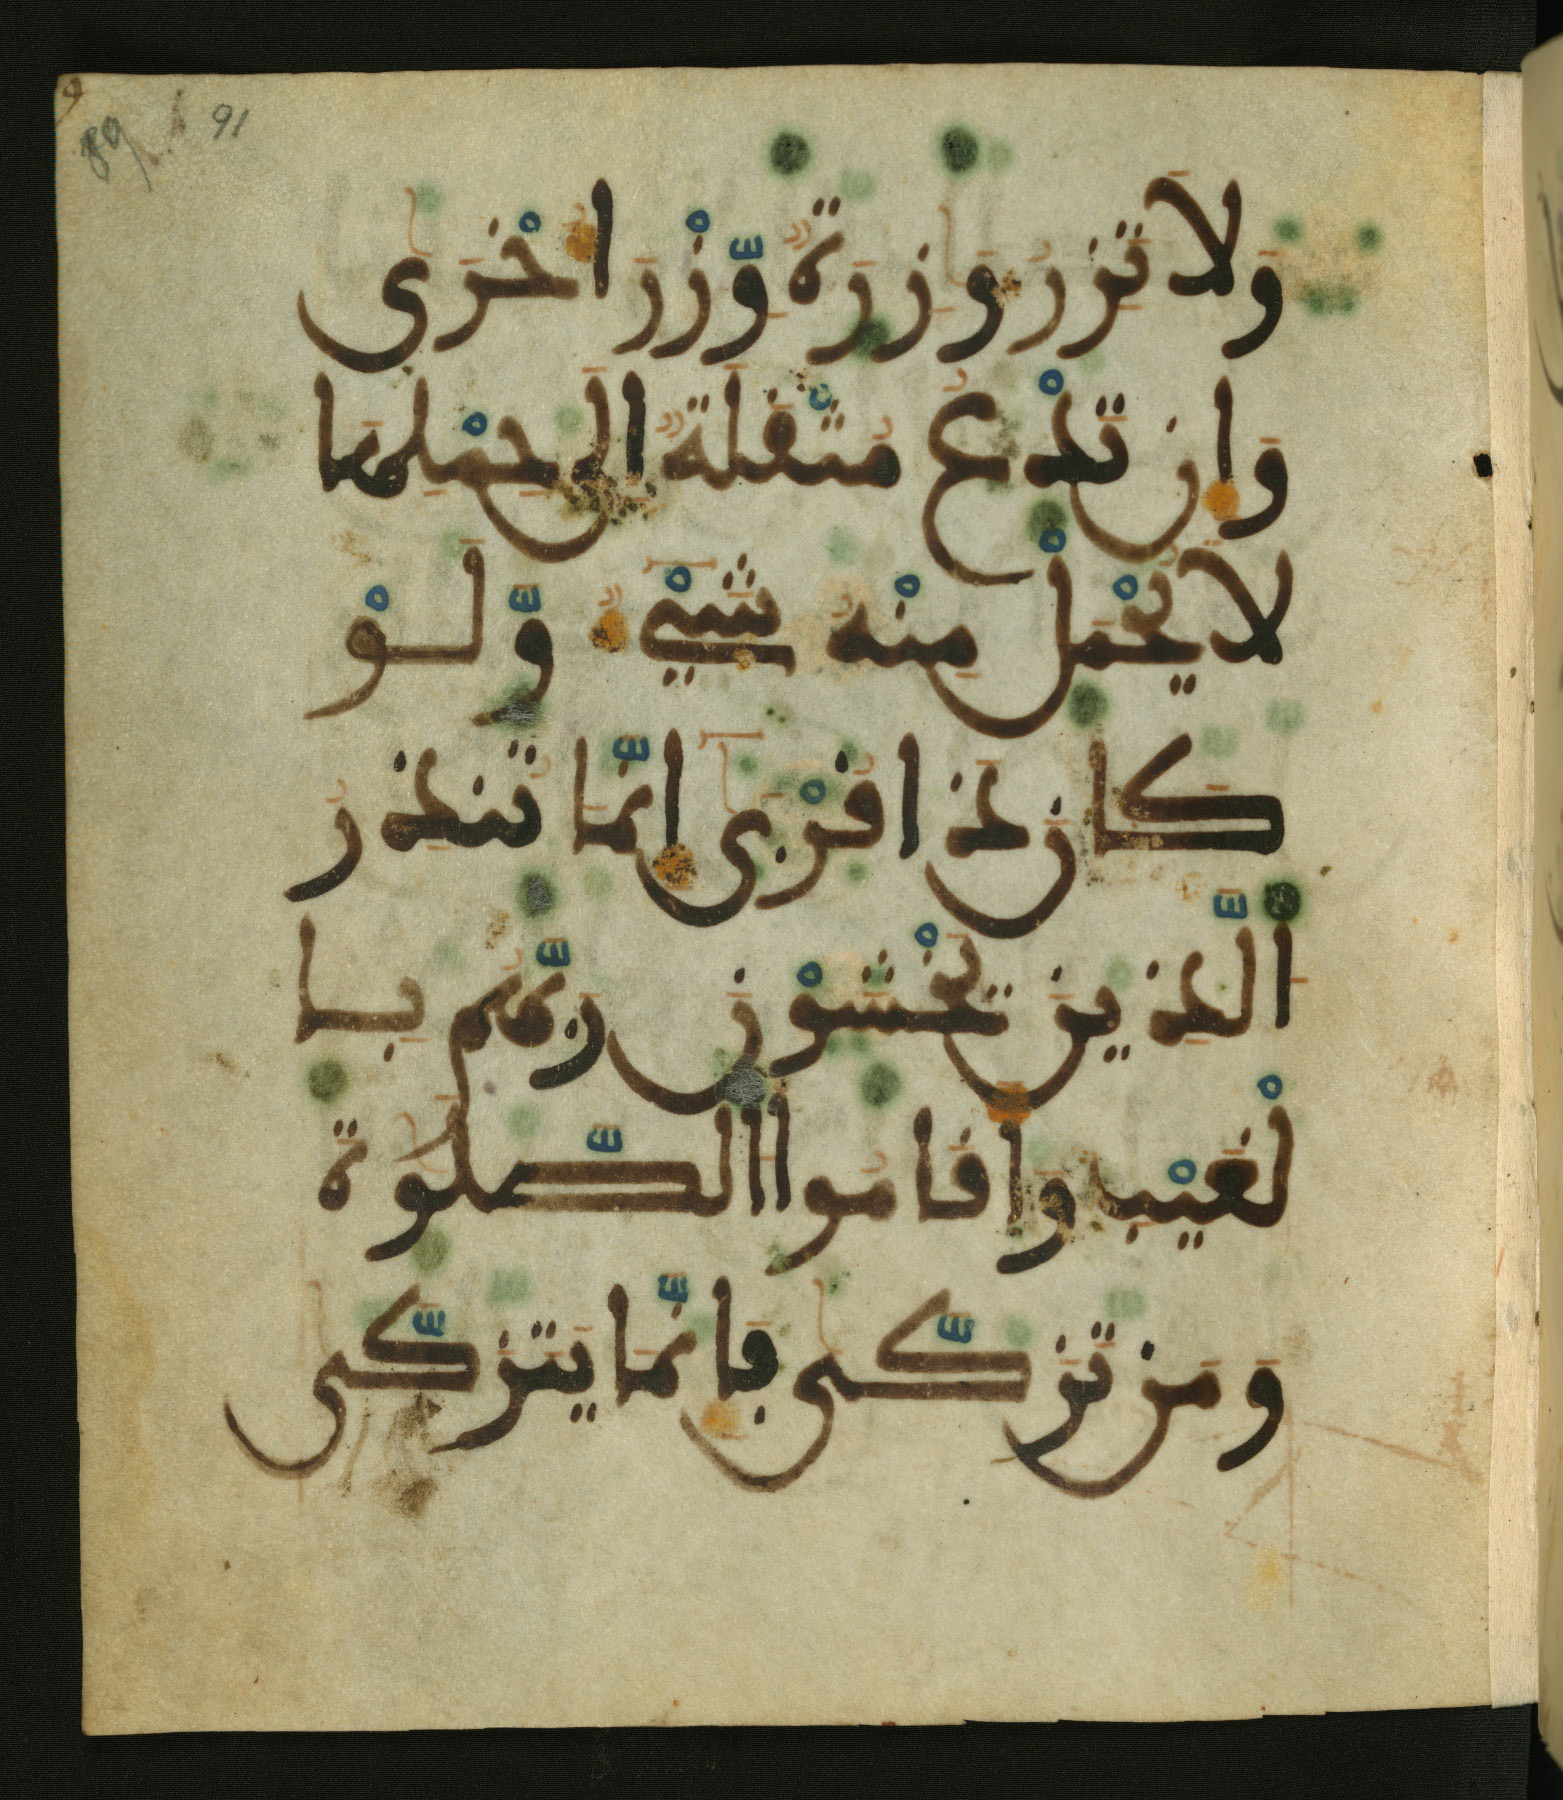 89 91
وَلَا تَزِرُ وَازِرَةٌ وِّزْرَ اُخْرَىٰ
وَاِن تَدْعُ مُثْقَلَةٌ اِلَىٰ حِمْلِهَا
لَا يُحْمَلْ مِنْهُ شَيْءٌ وَّلَوْ
كَانَ ذَا قُرْبَىٰ اِنَّمَا تُنذِرُ
الَّذِينَ يَخْشَوْنَ رَبَّهُم بِا
لْغَيْبِ وَاَقَامُوا الصَّلَوٰةَ
وَمَن تَزَكَّىٰ فَاِنَّمَا يَتَزَكَّىٰ